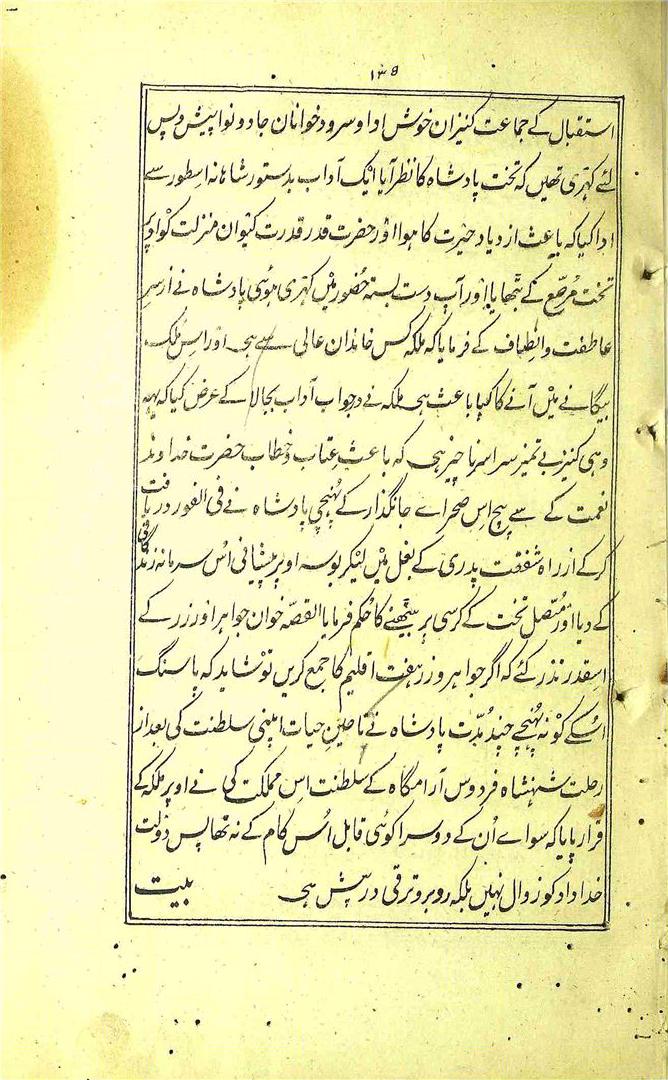 ۱۳۶
استقبال کے جماعت کنیزان خوش ادا و سرود خوانان جادو نوا پیش و پس
لئے کہڑی تھیں کہ تخت پادشاہ کا نظر آیا ایک آداب بدستور شاہانہ اسطور سے
ادا کیا کہ باعث ازدیاد حیرت کا ہوا اور حضرت قدر قدرت کیوان منزلت کو اوپر
تخت مرصّع کے بٹھایا اور آپ دست بستہ حضور میں کہڑی ہوئی پادشاہ نے از سرِ
عاطفت والطاف کے فرمایا کہ ملکہ کس خاندان عالی سے ہی اور اس ملک
بیگانے میں آنے کا کیا باعث ہی ملکہ نے در جواب آداب بجا لا کے عرض کیا کہ یہہ
وہی کنیز بے تمیز سراسر ناچیز ہی کہ باعثِ عتاب و خطاب حضرت خداوند
نعمت کے سے بیچ اس صحراے جانگذار کے پُہنچی پادشاہ نے فی الفور دریافت
کرکے از راہ شفقت پدری کے بغل میں لیکر بوسہ اوپر پیشانی اُس سرمانہ زندگانی
کے دیا اور متّصل تخت کے کرسی پر بیٹھنے کا حُکم فرمایا القصّہ خوان جواہر اور زر کے
اسقدر نذر کئے کہ اگر جواہر و زر ہفت اقلیم کا جمع کریں تو شاید کہ پاسنگ
اسکے کو نہ پُہنچے چند مُدّت پادشاہ نے تا حینِ حیات اپنی سلطنت کی بعد از
رحلت شہنشاہ فردوس آرامگاہ کے سلطنت اس مملکت کی نے اوپر ملکہ کے
قرار پایا کہ سواے اُن کے دوسرا کوئی قابل اُس کام کے نہ تھا پس دولت
خداداد کو زوال نہیں بلکہ روبرو ترقی درپیش ہی بیت